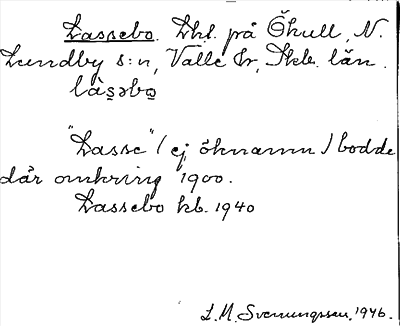 Lassebo. Lht. på Öhull, N.
Lundby s:n, Valle hr, Skb. län.
"Lasse" (ej öknamn) bodde
där omkring 1900.
Lassebo kb. 1940
L. M. Svenungsson, 1946.